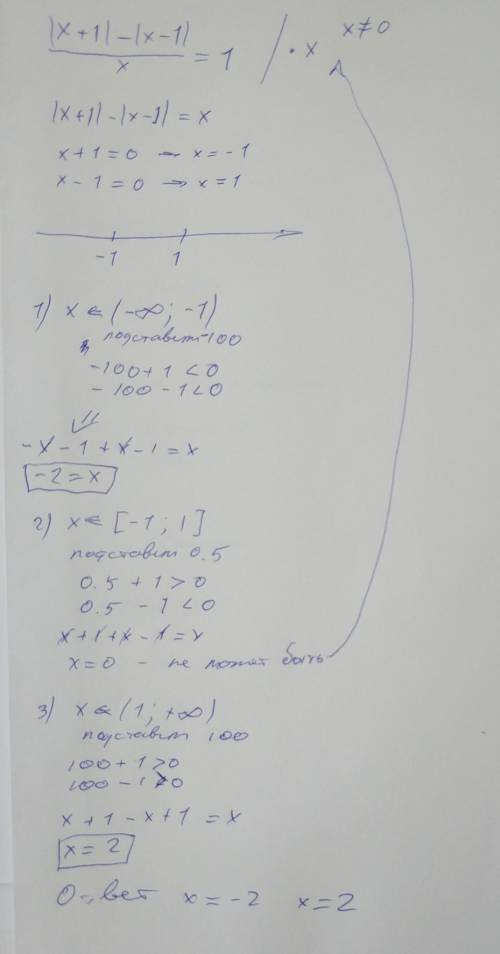 |x+1| - |x-1| / x = 1 / · x x ≠ 0
|x+1| - |x-1| = x
x+1=0 → x=-1
x-1=0 → x=1
-1 1
1) x ∈ (-∞; -1)
подставим -100
-100+1 < 0
-100-1 < 0
⇓
-x-1+x-1=x
-2=x
2) x ∈ [-1; 1]
подставим 0.5
0.5+1>0
0.5-1<0
x+1+x-1=x
x=0 - не может быть
3) x ∈ (1; +∞)
подставим 100
100+1>0
100-1>0
x+1-x+1=x
x=2
Ответ x=-2 x=2